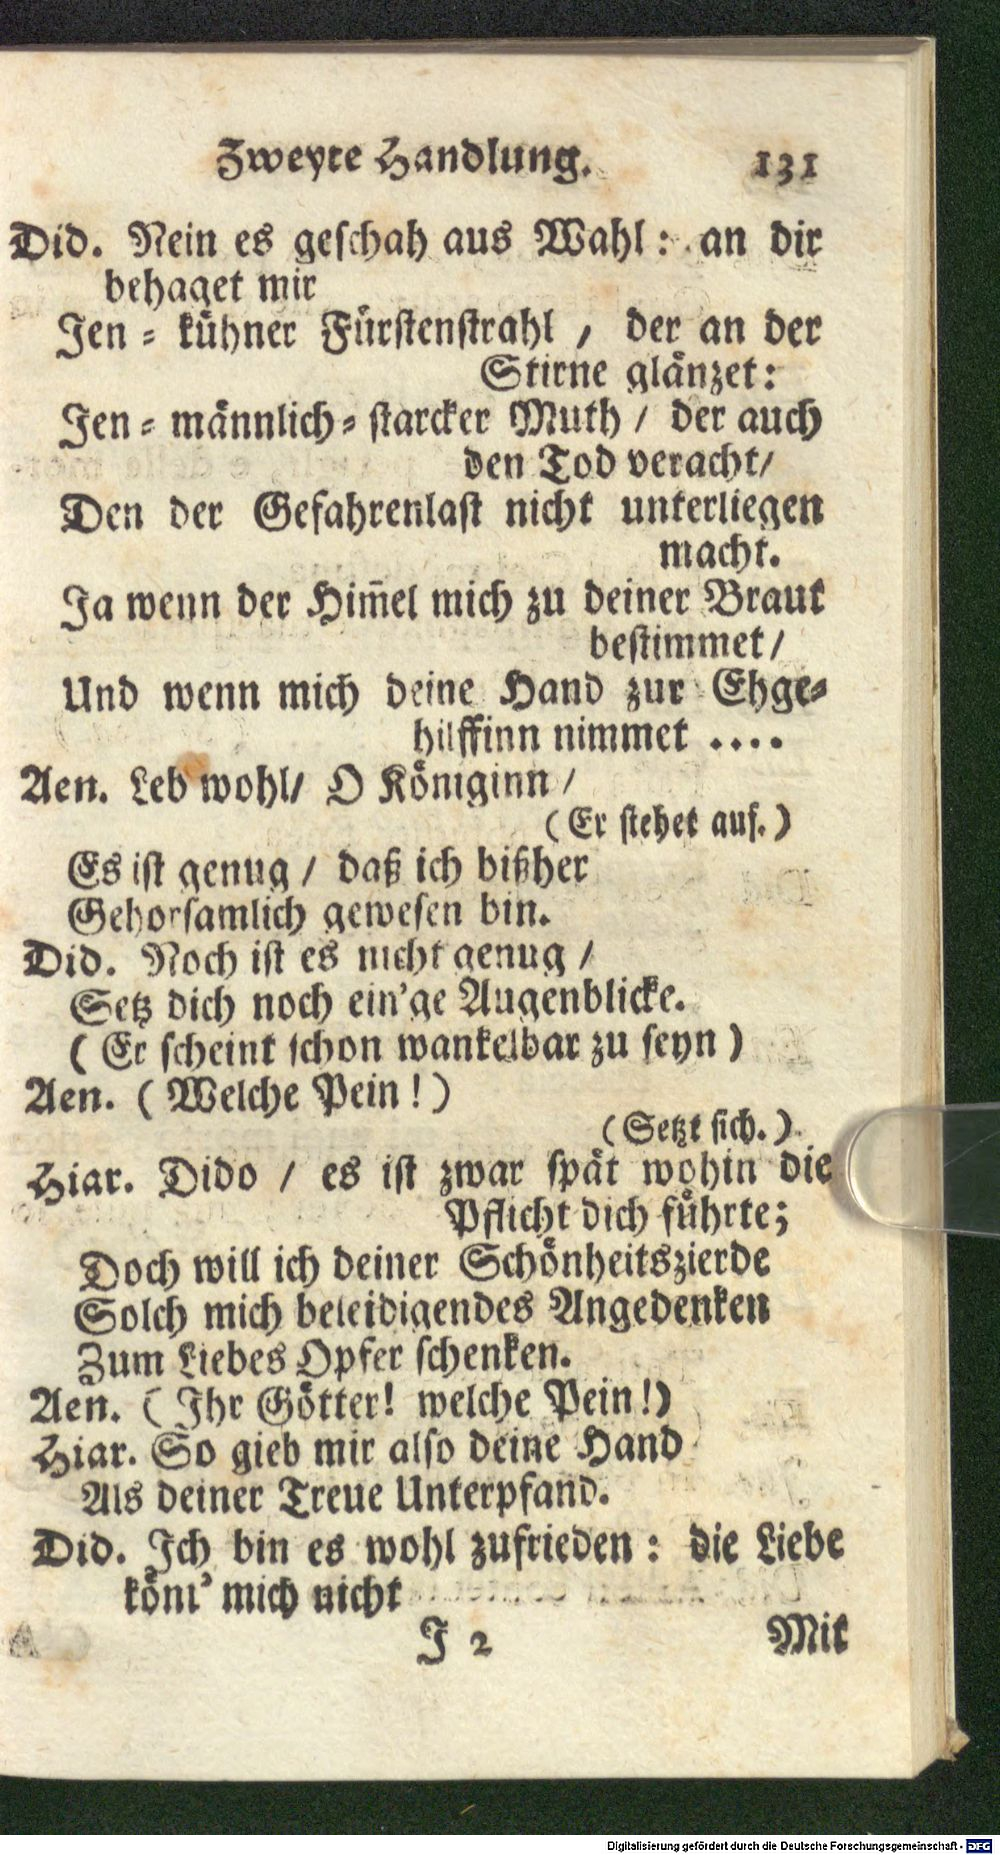 Zweyte Handlung. 131
Did. Nein es geschah aus Wahl: an dir
behaget mir
Jen = kühner Fürstenstrahl / der an der
Stirne glänzet:
Jen = männlich = starcker Muth / der auch
den Tod veracht/
Den der Gefahrenlast nicht unterliegen
macht.
Ja wenn der Him̄el mich zu deiner Braut
bestimmet/
Und wenn mich deine Hand zur Ehge=
hilffinn nimmet ....
Aen. Leb wohl/ O Königinn /
(Er stehet auf.)
Es ist genug / daß ich bißher
Gehorsamlich gewesen bin.
Did. Noch ist es nicht genug /
Setz dich noch ein'ge Augenblicke.
(Er scheint schon wankelbar zu seyn)
Aen. (Welche Pein!)
(Setzt sich.)
Hiar. Dido / es ist zwar spät wohin die
Pflicht dich führte;
Doch will ich deiner Schönheitszierde
Solch mich beleidigendes Angedenken
Zum Liebes Opfer schenken.
Aen. (Ihr Götter! welche Pein!)
Hiar. So gieb mir also deine Hand
Als deiner Treue Unterpfand.
Did. Ich bin es wohl zufrieden: die Liebe
mich nicht
J 2 Mit
Digitalisierung gefördert durch die Deutsche Forschungsgemeinschaft - DFG